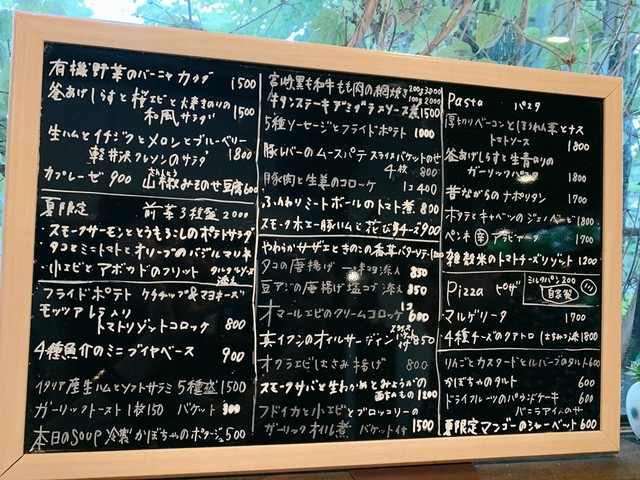 有機野菜のバーニャカウダ 1500
釜あげしらすと桜エビと大葉きのりの
和風サラダ 1500
生ハムとイチジクとメロンとブルーベリー
軽井沢クレソンのサラダ 1800
カプレーゼ 900 山椒みそのせ豆腐 600
夏限定 前菜3種盛 2000
・スモークサーモンととうもろこしのポテトサラダ
・タコとミニトマトとオリーブのバジルマリネ
・小エビとアボカドのフリット タルタルソース
添え
フライドポテト ケチャップ&マヨネーズ
モッツァレラ入り
トマトリゾットコロッケ 800
4種魚介のミニブイヤベース 900
イタリア産生ハムとソフトサラミ 5種盛 1500
ガーリックトースト1枚150 バケット 300
本日のSOUP 冷製かぼちゃのポタージュ 500
宮崎黒毛和牛もも肉の網焼き
牛タンステーキデミグラスソース煮 1500
5種ソーセージとフライドポテト 1000
豚レバーのムースパテ スライスバケットのせ
4枚 800
豚肉と生姜のコロッケ 1コ400
ふんわりミートボールのトマト煮 800
スモークホエー豚ハムと花びらチーズ 900
やわらかサザエときのこの香草バターソテー
タコの唐揚げ 一味マヨ添え 850
豆アジの唐揚げ 塩レモン添え 850
オマールエビのクリームコロッケ 1コ 600
真イワシのオイルサーディン スライスバケット付 850
オクラエビはさみ揚げ 800
スモークサバと生わかめとみょうがの
酢もの 1200
フドイカと小エビとブロッコリーの
ガーリックオイル煮 バケット付 1500
Pasta パスタ
厚切りベーコンとほうれん草とナス
トマトソース 1800
釜あげしらすと生青のりの
ガーリックパスタ 1800
昔ながらのナポリタン 1700
ホタテとキャベツのジェノベーゼ 1800
ペンネ 辛 アラビアータ 1700
雑穀米のトマトチーズリゾット 1200
Pizza ピザ ミルクパン 200
自家製
マルゲリータ 1700
4種チーズのクアトロ はちみつ添 1800
りんごとカスタードとルバーブのタルト 600
かぼちゃのタルト 600
ドライフルーツのパウンドケーキ 600
バニラアイスのせ
夏限定マンゴーのシャーベット 600